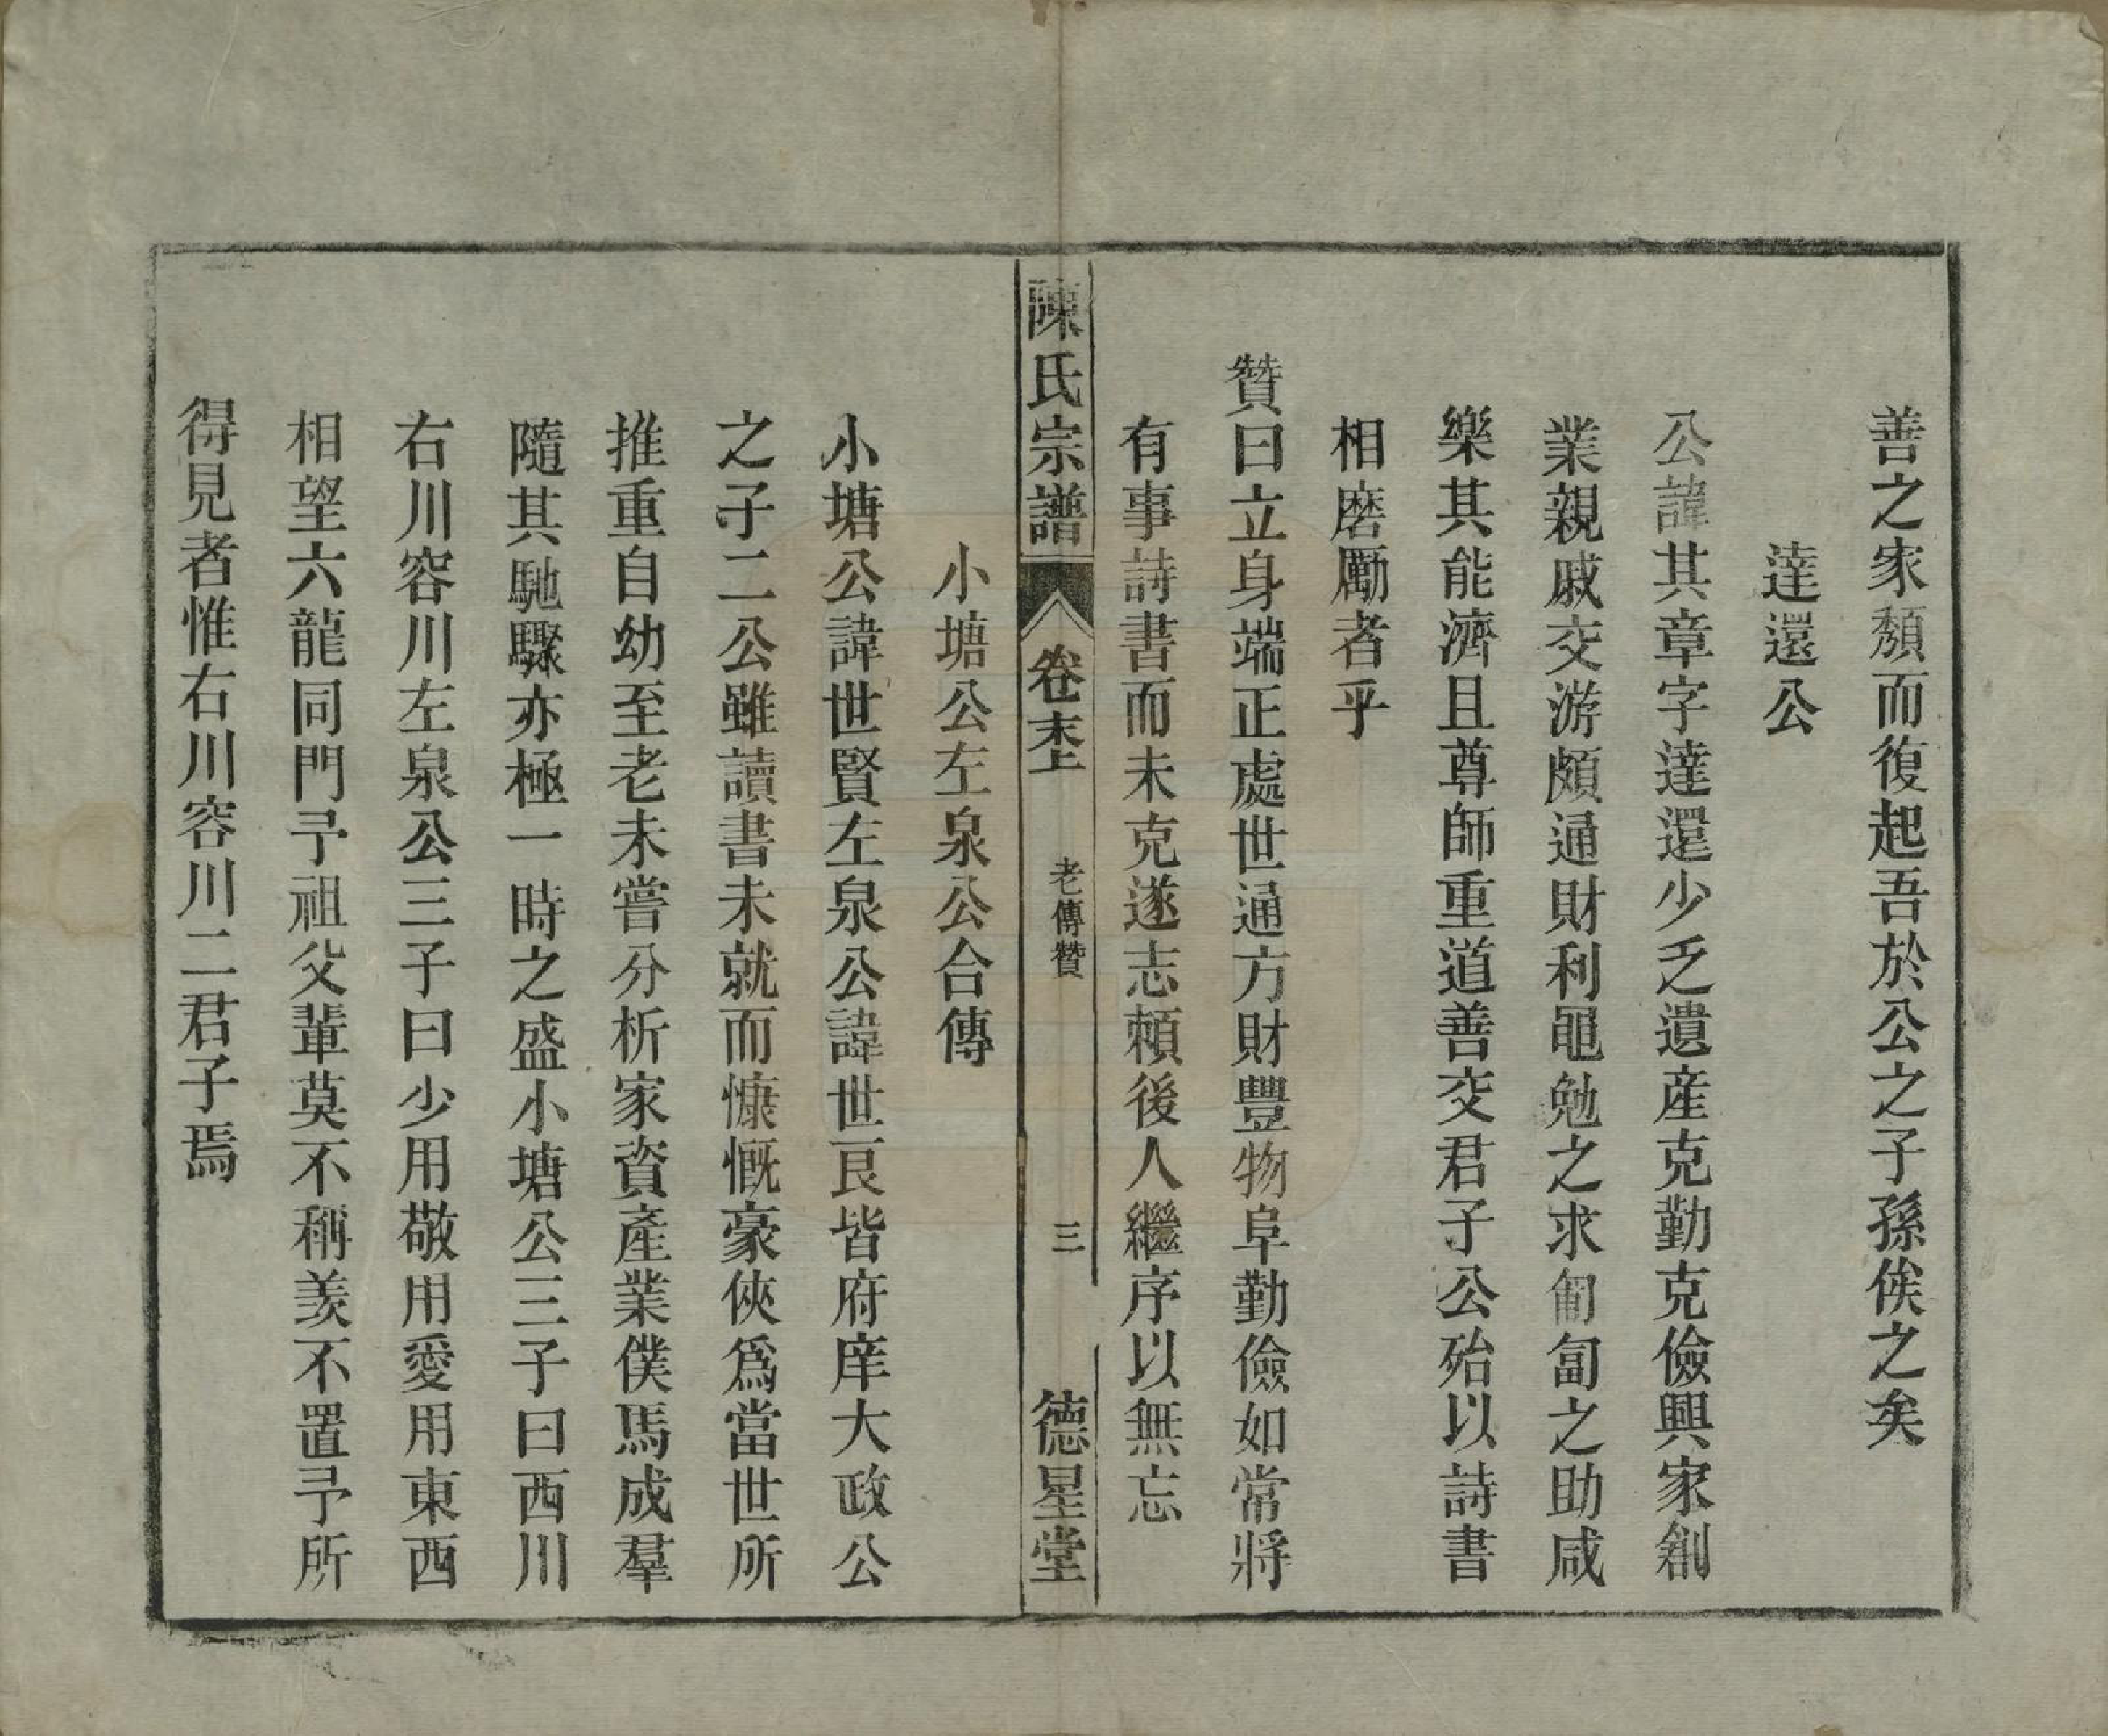 善之家頽而復起吾於公之子孫俟之矣
達還公
公諱其章字達還少乏遺産克勤克儉興家創
業親戚交游頗通財利黽勉之求匍匐之助咸
樂其能濟且尊師重道善交君子公殆以詩書
相磨勵者乎
贊曰立身端正處世通方財豐物阜勤儉如常將
有事詩書而未克遂志頼後人繼序以無忘
陳氏宗譜
卷末上
老傳贊
三
德星堂
小塘公左泉公合傳
小塘公諱世賢左泉公諱世艮皆府庠大政公
之子二公雖讀書未就而慷慨豪俠爲當世所
推重自幼至老未嘗分析家資產業僕馬成羣
隨其馳驟亦極一時之盛小塘公三子曰西川
右川容川左泉公三子曰少用敬用愛用東西
相望六龍同門予祖父輩莫不稱羨不置予所
得見者惟右川容川二君子焉